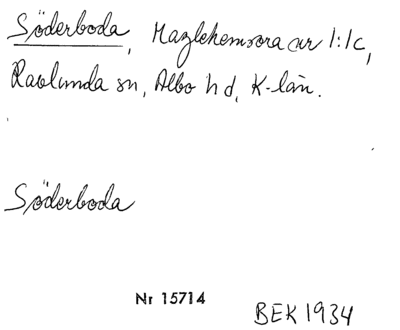 Söderboda, Maglehemsora nr 1:1c,
Ravlunda sn, Albo hd, K-län.
Söderboda
Nr 15714
BEK 1934